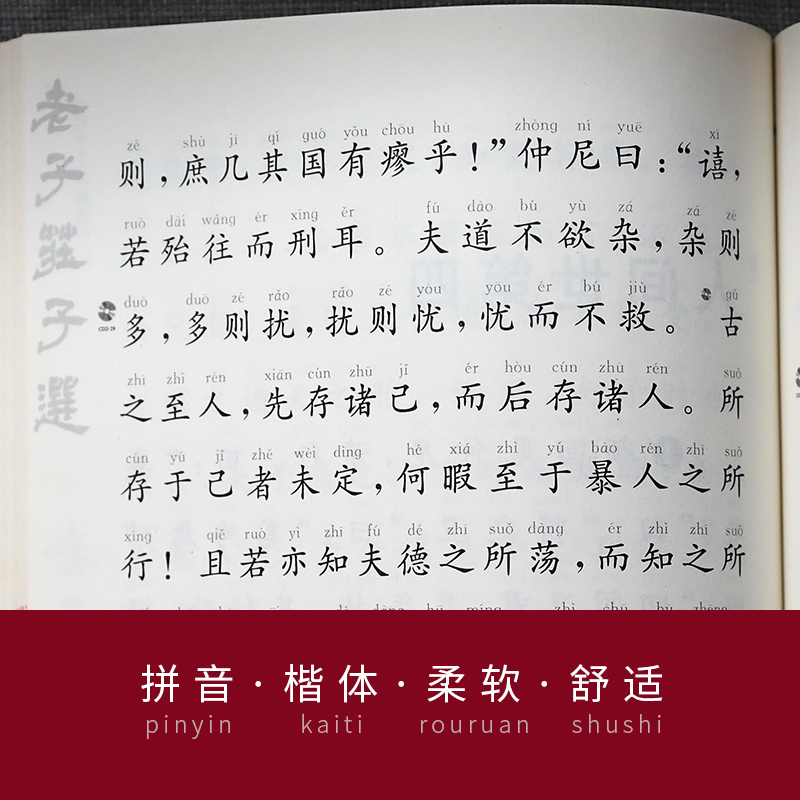 老子莊子選
zé shù jī qí guó yǒu chōu hū zhòng ní yuē xī
则，庶几其国有瘳乎！”仲尼曰：“譆，
ruò dài wǎng ér xíng ěr fú dào bú yù zá zá zé
若殆往而刑耳。夫道不欲杂，杂则
CD2 29
duō duō zé rǎo rǎo zé yōu yōu ér bú jiù gǔ
多，多则扰，扰则忧，忧而不救。古
zhī zhì rén xiān cún zhū jǐ ér hòu cún zhū rén suǒ
之至人，先存诸己，而后存诸人。所
cún yú jǐ zhě wèi dìng hé xiá zhì yú bào rén zhī suǒ
存于己者未定，何暇至于暴人之所
xíng qiě ruò yì zhī fú dé zhī suǒ dàng ér zhì zhī suǒ
行！且若亦知夫德之所荡，而知之所
拼音·楷体·柔软·舒适
pinyin kaiti rouruan shushi